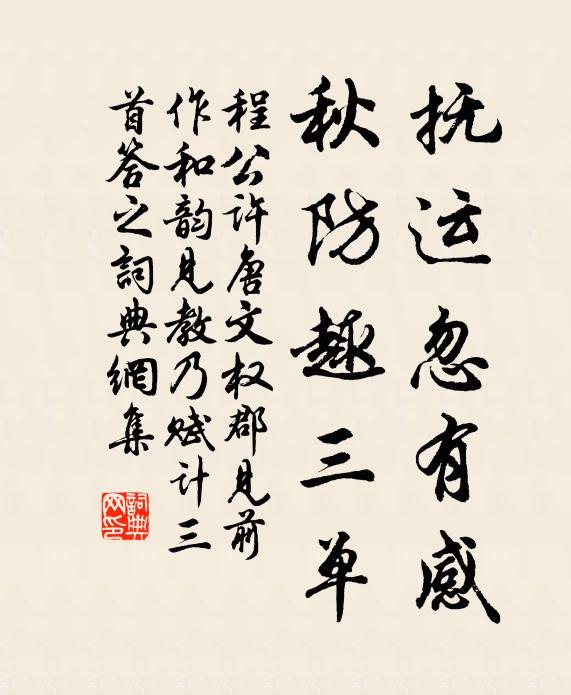 抚运忽有感
秋防趣三单
程公许唐文权郡见前
作和韵见教乃赋计三
首答之詞典網集
詞典
网印